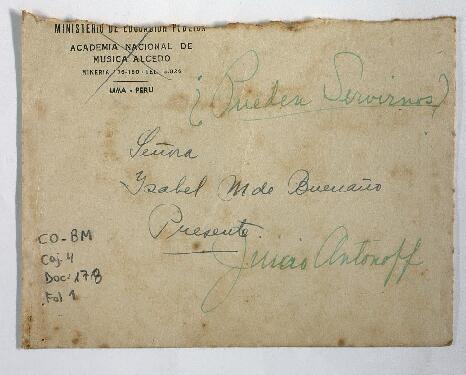 MINISTERIO DE EDUCACION PUBLICA
ACADEMIA NACIONAL DE
MUSICA ALCEDO
LIMA - PERU
(Pueden Servirnos)
Señora
Ysabel M de Buenaño
Presente.
Juicio Antonoff
CO-BM
Caj. 4
Doc. 178
Fol 1